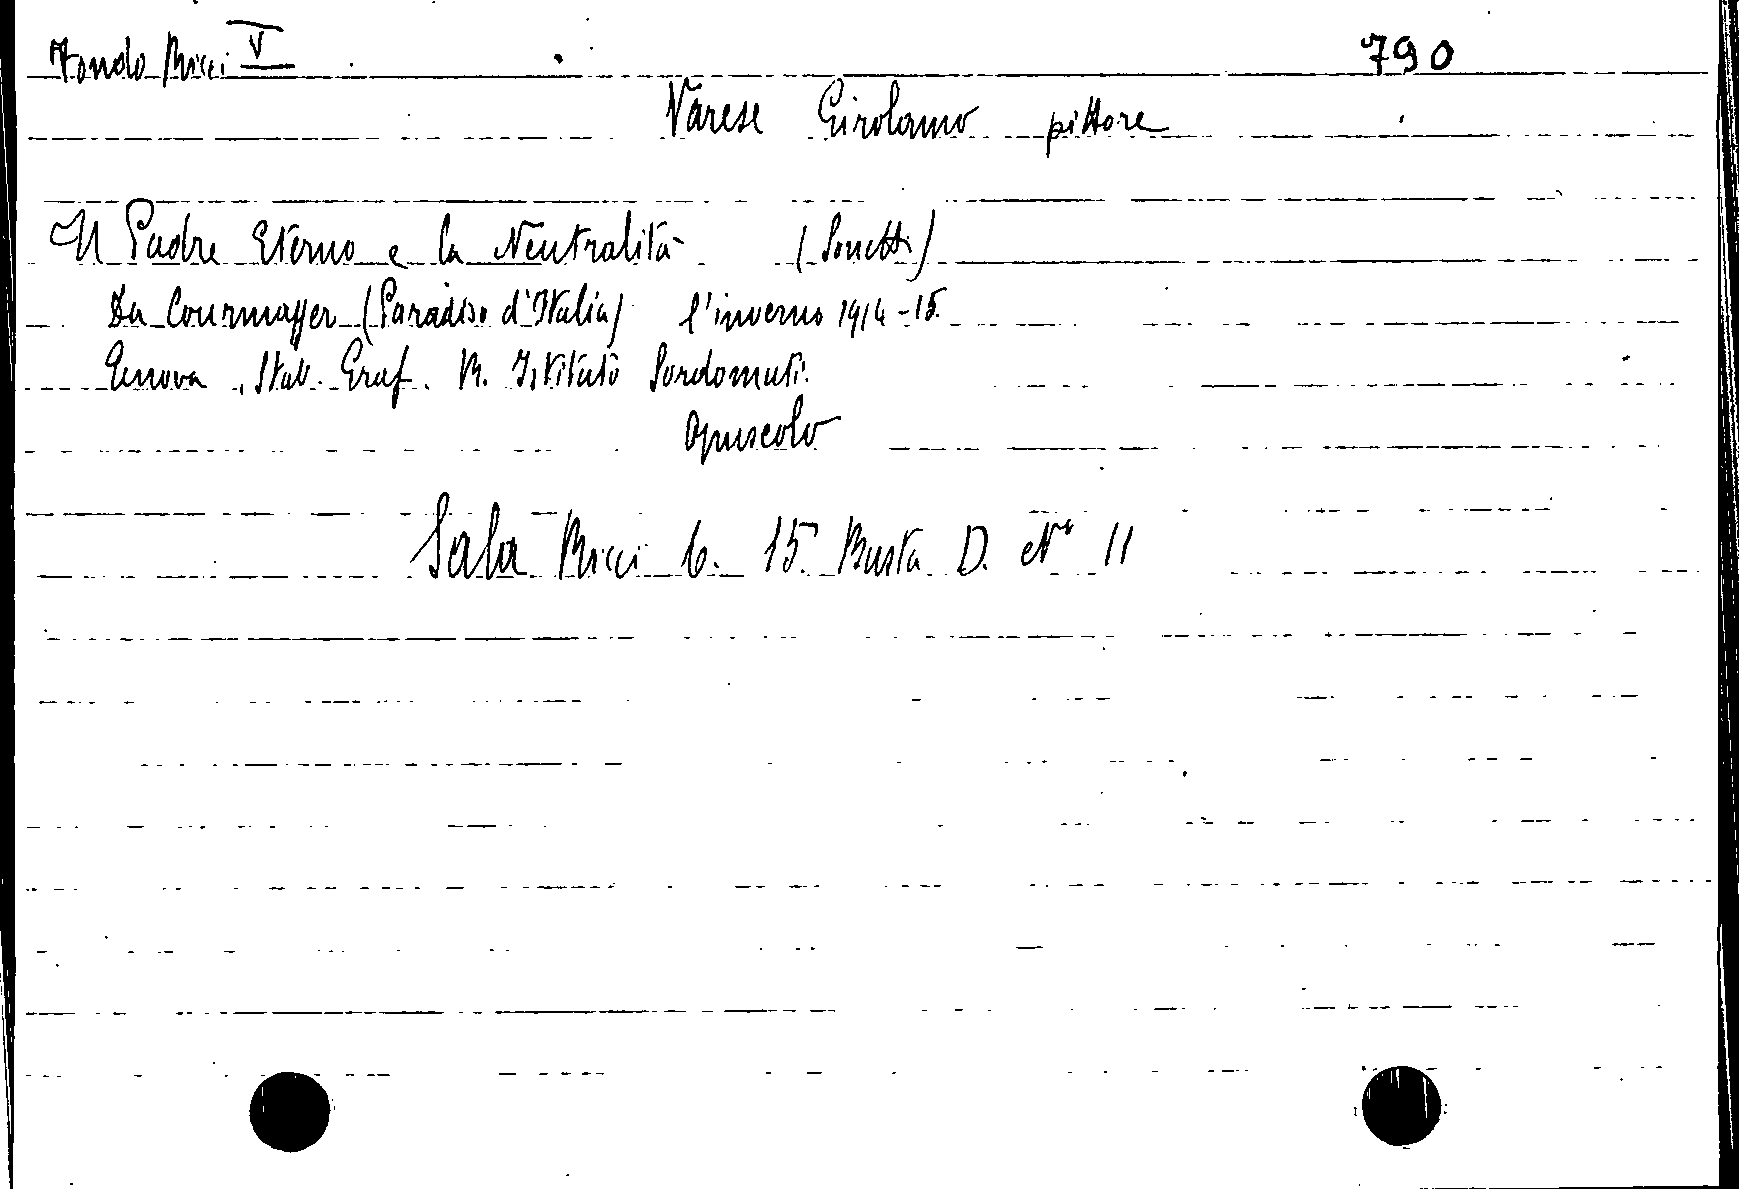 Fondo Ricci V 790
Varese Girolamo pittore
Il Padre Eterno e la Neutralità (Sonetti)
Da Courmayer (Paradiso d'Italia) l'inverno 1914-15.
Genova, Stab. Graf. R. Istituto Sordomuti.
Opuscolo
Sala Ricci 6. 15. Busta D. N° 11